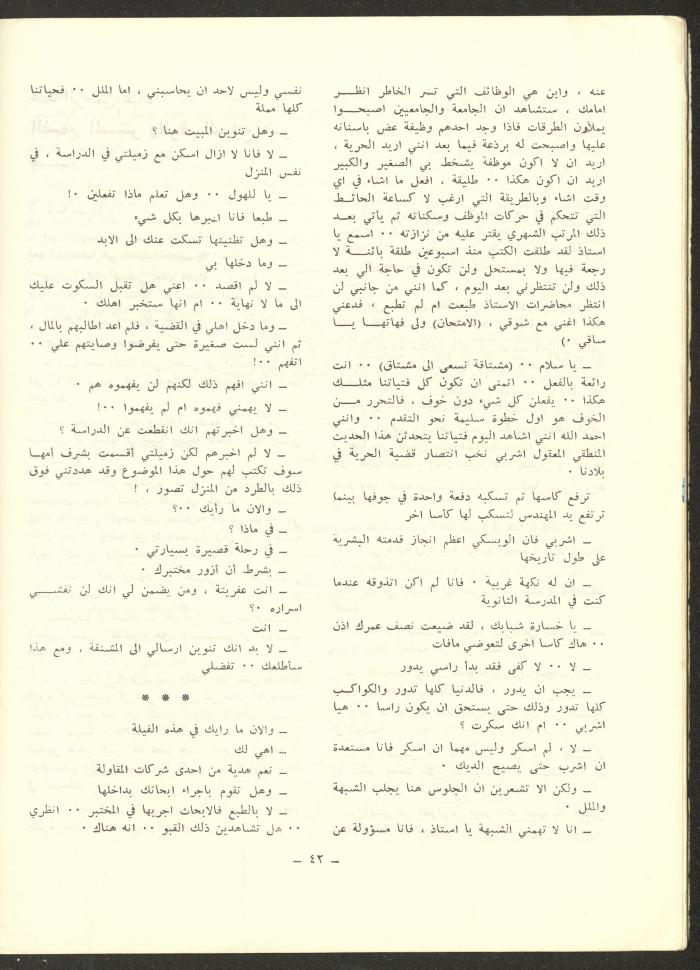 عنه ، واين هي الوظائف التي تسر الخاطر انظــر
امامك ، ستشاهد ان الجامعة والجامعيين اصبحــوا
يملأون الطرقات فاذا وجد احدهم وظيفة عض باسنانه
عليها واصبحت له برذعة فيما بعد انني اريد الحرية ،
اريد ان لا اكون موظفة يشخط بي الصغير والكبير
اريد ان اكون هكذا ٠٠ طليقة ، افعل ما اشاء في اي
وقت اشاء وبالطريقة التي ارغب لا كساعة الحائــط
التي تتحكم في حركات الموظف وسكناته ثم يأتي بعــد
ذلك المرتب الشهري يقتر عليه من نزازته ٠٠ اسمع يا
استاذ لقد طلقت الكتب منذ اسبوعين طلقة بائنــة لا
رجعة فيها ولا بمستحل ولن تكون في حاجة الي بعد
ذلك ولن تنتظرني بعد اليوم ، كما انني من جانبي لن
انتظر محاضرات الاستاذ طبعت ام لم تطبع ، فدعني
هكذا اغني مع شوقي ، (الامتحان) ولى فهاتهــا يــا
ساقي ٠)
ـ يا سلام ٠٠ (مشتاقة تسعى الى مشتاق) ٠٠ انت
رائعة بالفعل ٠٠ اتمنى ان تكون كل فتياتنا مثلــك
هكذا ٠٠ يفعلن كل شيء دون خوف ، فالتحرر مــن
الخوف هو اول خطوة سليمة نحو التقدم ٠٠ وانني
احمد الله انني اشاهد اليوم فتياتنا يتحدثن هذا الحديث
المنطقي المعقول اشربي نخب انتصار قضية الحرية في
بلادنا ٠
ترفع كاسها ثم تسكبه دفعة واحدة في جوفها بينما
ترتفع يد المهندس لتسكب لها كاسا اخر
ـ اشربي فان الويسكي اعظم انجاز قدمته البشرية
على طول تاريخها
ـ ان له نكهة غريبة ٠ فانا لم اكن اتذوقه عندما
كنت في المدرسة الثانوية
ـ يا خسارة شبابك ، لقد ضيعت نصف عمرك اذن
٠٠ هاك كاسا اخرى لتعوضي مافات
ـ لا ٠٠ لا كفى فقد بدأ راسي يدور
ـ يجب ان يدور ، فالدنيا كلها تدور والكواكــب
كلها تدور وذلك حتى يستحق ان يكون راسا ٠٠ هيا
اشربي ٠٠ ام انك سكرت ؟
ـ لا ، لم اسكر وليس مهما ان اسكر فانا مستعدة
ان اشرب حتى يصيح الديك ٠
ـ ولكن الا تشعرين ان الجلوس هنا يجلب الشبهة
والملل ٠
ـ انا لا تهمني الشبهة يا استاذ ، فانا مسؤولة عن
نفسي وليس لاحد ان يحاسبني ، اما الملل ٠٠ فحياتنا
كلها مملة
ـ وهل تنوين المبيت هنا ؟
ـ لا فانا لا ازال اسكن مع زميلتي في الدراسة ، في
نفس المنزل
ـ يا للهول ٠٠ وهل تعلم ماذا تفعلين ٠!
ـ طبعا فانا اخبرها بكل شيء
ـ وهل تظنينها تسكت عنك الى الابد
ـ وما دخلها بي
ـ لا لم اقصد ٠٠ اعني هل تقبل السكوت عليك
الى ما لا نهاية ٠٠ ام انها ستخبر اهلك ٠
ـ وما دخل اهلي في القضية ، فلم اعد اطالبهم بالمال ،
ثم انني لست صغيرة حتى يفرضوا وصايتهم علي ٠٠
اتفهم ٠٠!
ـ انني افهم ذلك لكنهم لن يفهموه هم ٠
ـ لا يهمني فهموه ام لم يفهموا ٠٠!
ـ وهل اخبرتهم انك انقطعت عن الدراسة ؟
ـ لا لم اخبرهم لكن زميلتي أقسمت بشرف أمهــا
سوف تكتب لهم حول هذا الموضوع وقد هددتني فوق
ذلك بالطرد من المنزل تصور ، !
ـ والان ما رايك ٠٠؟
ـ في ماذا ؟
ـ في رحلة قصيرة بسيارتي ٠
ـ بشرط أن أزور مختبرك ٠
ـ انت عفريتة ، ومن يضمن لي انك لن تفشــي
اسراره ٠؟
ـ انت
ـ لا بد انك تنوين ارسالي الى المشنقة ، ومع هذا
سأطلعك ٠٠ تفضلي
* * *
ـ والان ما رايك في هذه الفيلة
ـ اهي لك
ـ نعم هدية من احدى شركات المقاولة
ـ وهل تقوم باجراء ابحاثك بداخلها
ـ لا بالطبع فالابحاث اجريها في المختبر ٠٠ انظري
٠٠ هل تشاهدين ذلك القبو ٠٠ انه هناك ٠
ـ ٤٢ ـ